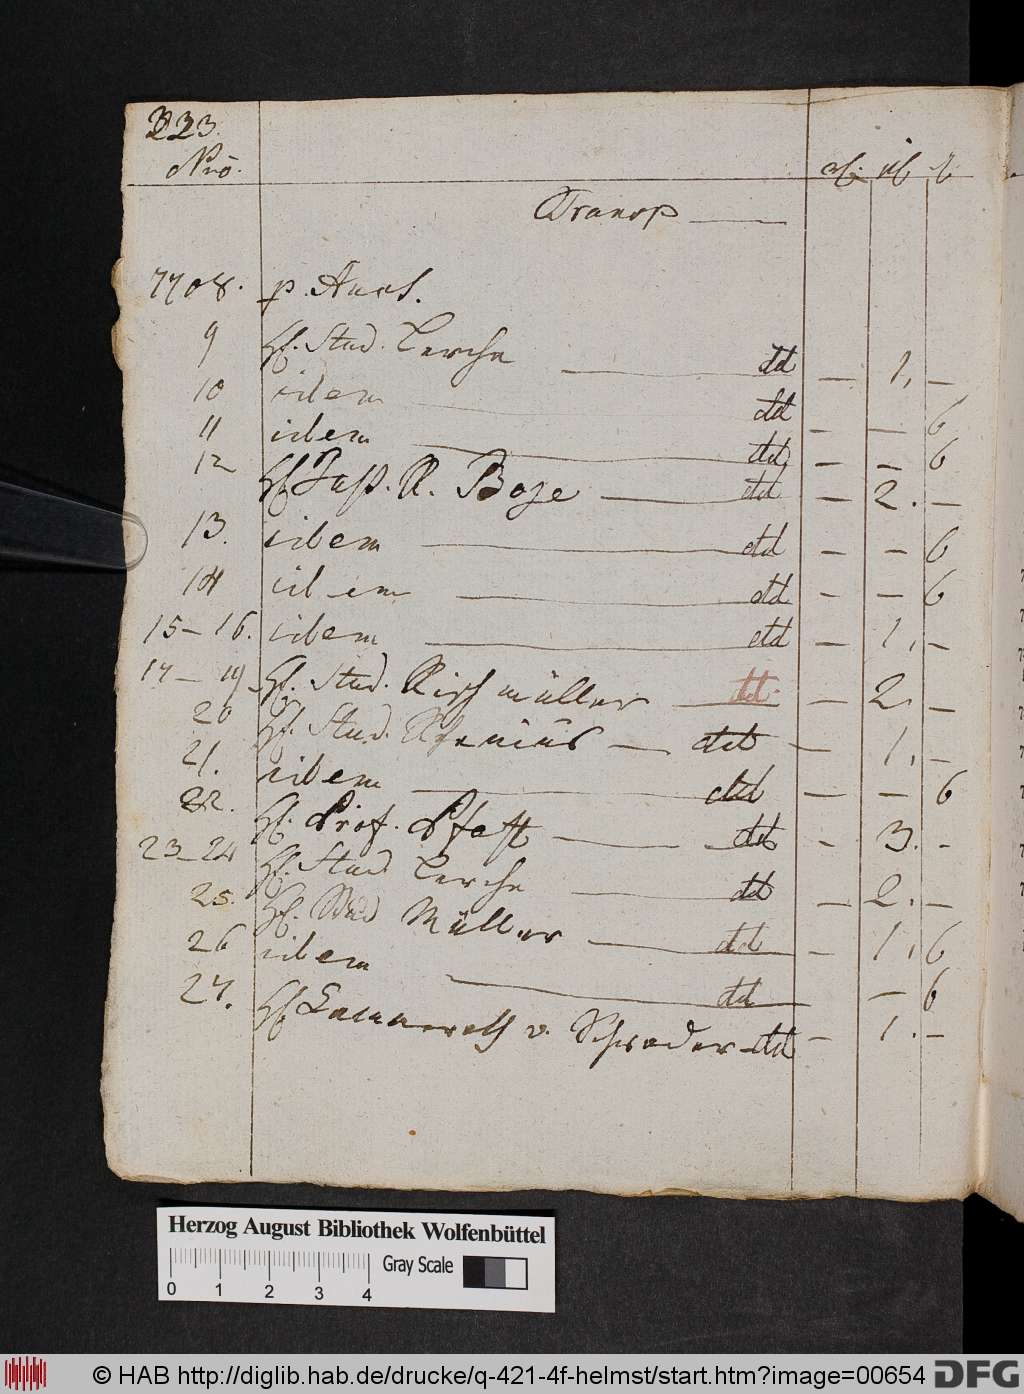 223.
Nro.
Transp
7708. p. Auct.
9 H. Stud. Lerche dd — 1. —
10 idem dd — — 6
11 idem dd — — 6
12 H. Past. R. Boze dd — 2. —
13. idem dd — — 6
14 idem dd — — 6
15–16. idem dd — 1. —
17–19. H. Stud. Kirchmüller dd — 2. —
20 H. Stud. dd — 1. —
21. idem dd — — 6
22. H. Prof. Pfaff dd — 3. —
23–24 H. Stud. Lerche dd — 2. —
25. H. Stud Müller dd — 1. 6
26 idem dd — 6
27. H. Cammerath v. Schrader dd — 1. —
Herzog August Bibliothek Wolfenbüttel
Gray Scale
0 1 2 3 4
© HAB http://diglib.hab.de/drucke/q-421-4f-helmst/start.htm?image=00654
DFG